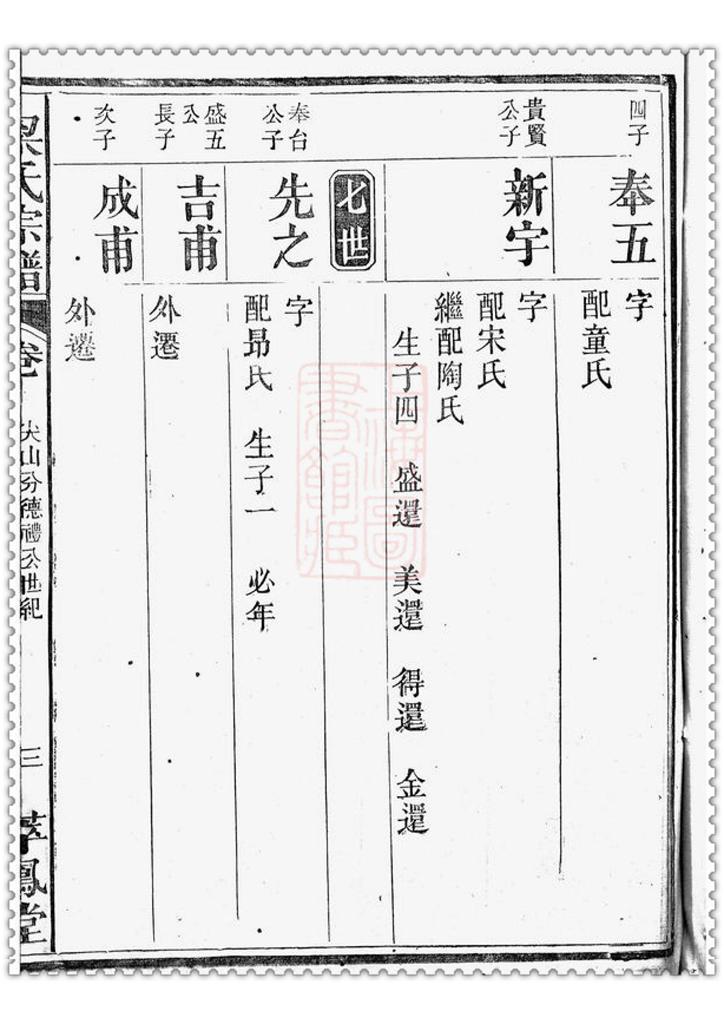 四子
奉五
字
配童氏
貴賢
公子
新宇
字
配宋氏
繼配陶氏
生子四 盛還 美還 得還 金還
七世
奉台
公子
先之
字
配昂氏 生子一 必年
盛五
公
長子
吉甫
外遷
次子
成甫
外遷
吳氏宗譜
卷
尖山分德禮公世紀
三
萃鳳堂
上海圖
書館藏